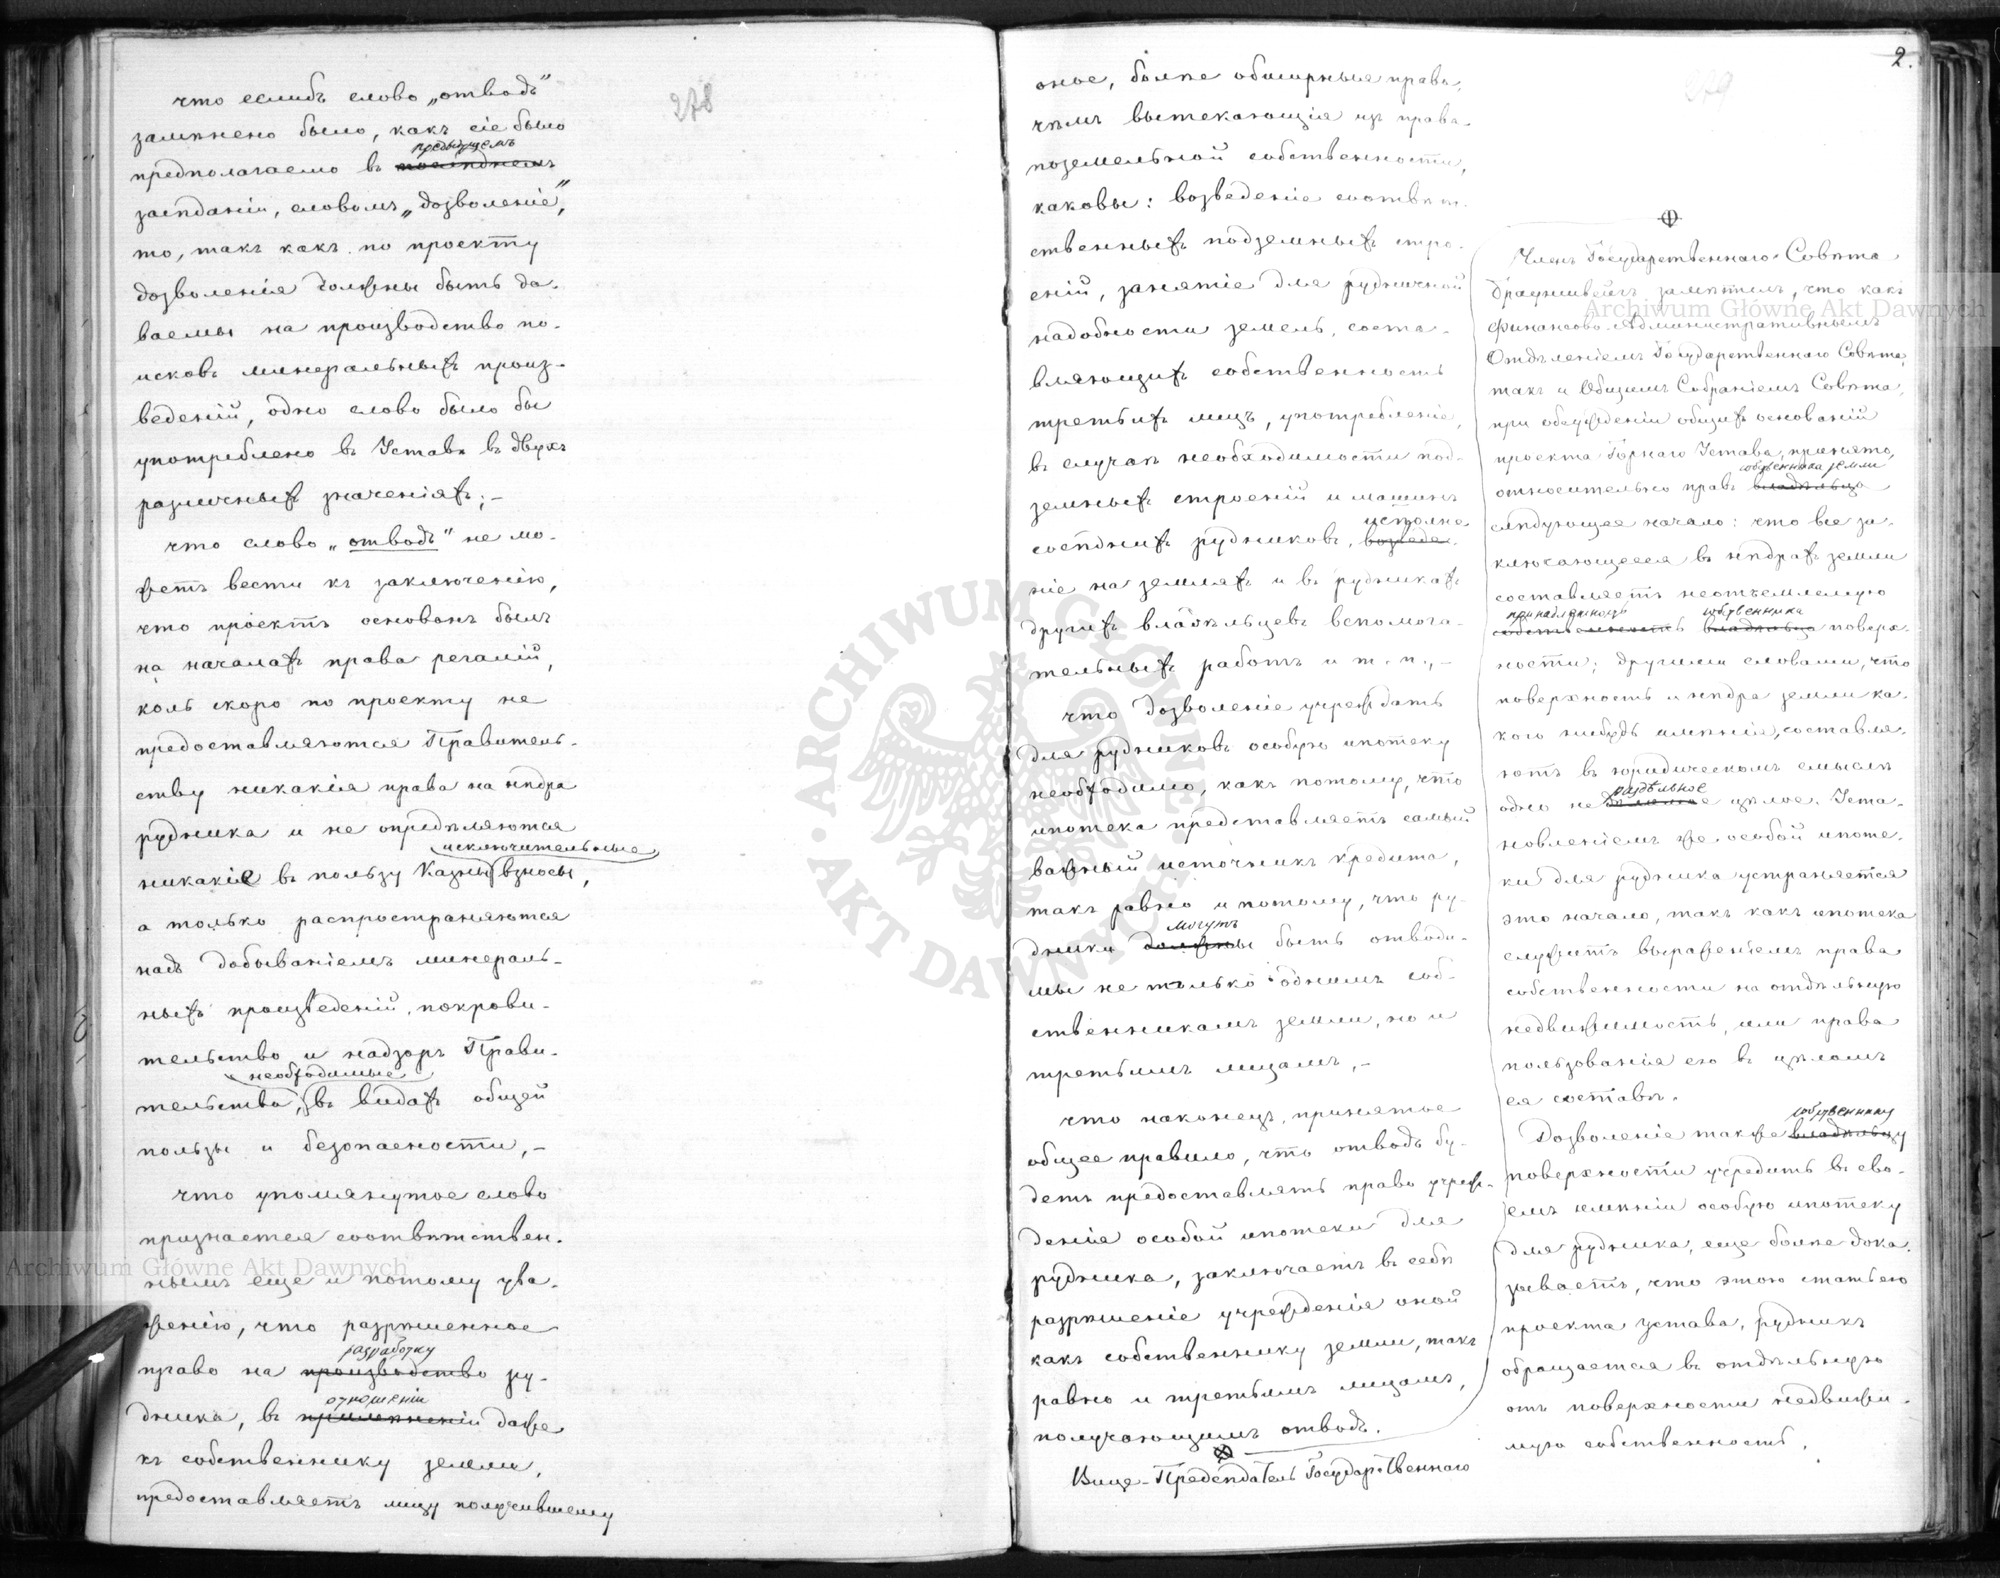 278
что еслибъ слово „отводъ"
замѣнено было, какъ сіе было
предъидущемъ
предполагаемо въ послѣднемъ
засѣданіи, словомъ „дозволеніе",
то, такъ какъ по проекту
дозволенія должны быть да-
ваемы на производство по-
исковъ минеральныхъ произ-
веденій, одно слово было бы
употреблено въ Уставѣ въ двухъ
различныхъ значеніяхъ; –
что слово „отводъ" не мо-
жетъ вести къ заключенію,
что проектъ основанъ былъ
на началахъ права регалій,
коль скоро по проекту не
предоставляются Правитель-
ству никакія права на нѣдра
рудника и не опредѣляются
исключительные
никакіе въ пользу Казны взносы,
а только распространяются
надъ добываніемъ минераль-
ныхъ произведеній, покрови-
тельство и надзоръ Прави-
необходимые
тельства, въ видахъ общей
пользы и безопасности, –
что упомянутое слово
признается соотвѣтствен-
нымъ еще и потому ува-
женію, что разрѣшенное
разработку
право на производство ру-
отношеніи
дника, въ примѣненіи даже
къ собственнику земли,
предоставляетъ лицу получившему
2.
279
оное, болѣе обширныя права,
чѣмъ вытекающія изъ права
поземельной собственности,
каковы: возведеніе соотвѣт-
ственныхъ подземныхъ стро-
еній, занятіе для рудничной
надобности земель, соста-
вляющихъ собственность
третьихъ лицъ, употребленіе,
въ случаѣ необходимости под-
земныхъ строеній и машинъ
исполне-
сосѣднихъ рудниковъ, возведе-
ніе на земляхъ и въ рудникахъ
другихъ владѣльцевъ вспомога-
тельныхъ работъ и т. п., –
что дозволеніе учреждать
для рудниковъ особую ипотеку
необходимо, какъ потому, что
ипотека представляетъ самый
важный источникъ кредита,
такъ равно и потому, что ру-
могутъ
дники должны быть отводи-
мы не только однимъ соб-
ственникамъ земли, но и
третьимъ лицамъ, –
что наконецъ, принятое
общее правило, что отводъ бу-
детъ предоставлять право учреж-
денія особой ипотеки для
рудника, заключаетъ въ себѣ
разрѣшеніе учрежденія оной
какъ собственнику земли, такъ
равно и третьимъ лицамъ,
получающимъ отводъ.
Вице-Предсѣдатель Государственнаго
Членъ Государственнаго Совѣта
Брауншвейгъ замѣтилъ, что какъ
Финансово-Административнымъ
Отдѣленіемъ Государственнаго Совѣта,
такъ и Общимъ Собраніемъ Совѣта,
при обсужденіи общихъ основаній
проекта Горнаго Устава, принято,
собственника земли
относительно правъ владѣльца
слѣдующее начало: что все за-
ключающееся въ нѣдрахъ земли
составляетъ неотъемлемую
принадлежность собственника
собственность владѣльца поверх-
ности; другими словами, что
поверхность и нѣдра земли ка-
кого нибудь имѣнія, составля-
ютъ въ юридическомъ смыслѣ
раздѣльное
одно недѣлимое цѣлое. Уста-
новленіемъ же особой ипоте-
ки для рудника устраняется
это начало, такъ какъ ипотека
служитъ выраженіемъ права
собственности на отдѣльную
недвижимость, или права
пользованія ею въ цѣломъ
ея составѣ.
собственнику
Дозволеніе также владѣльцу
поверхности учредить въ сво-
емъ имѣніи особую ипотеку
для рудника, еще болѣе дока-
зываетъ, что этою статьею
проекта устава, рудникъ
обращается въ отдѣльную
отъ поверхности недвижи-
мую собственность.
Archiwum Główne Akt Dawnych
Archiwum Główne Akt Dawnych
ARCHIWUM GŁÓWNE AKT DAWNYCH